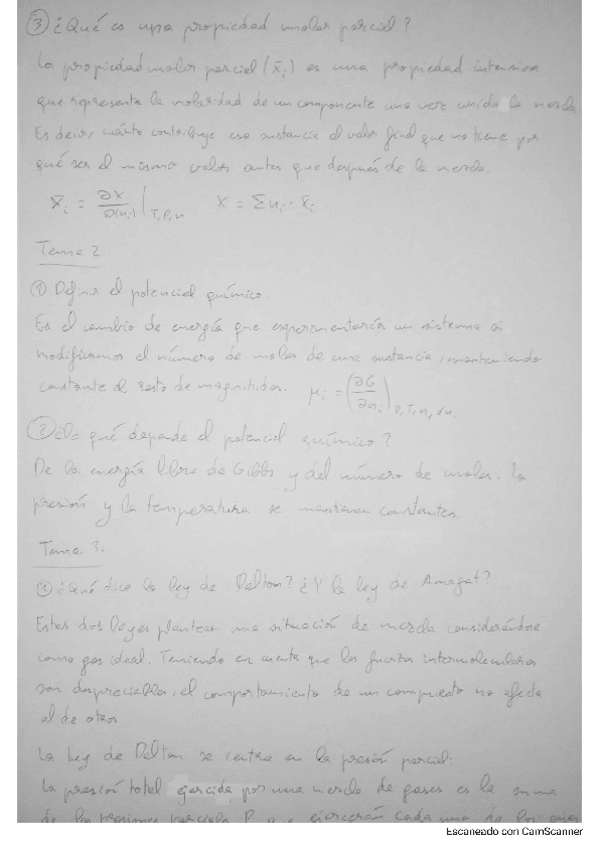 ③ ¿Qué es una propiedad molar parcial?
La propiedad molar parcial (x̄i) es una propiedad intensiva
que representa la molaridad de un componente una vez unido la mezcla
Es decir, cuánto contribuye esa sustancia al valor final que no tiene por
qué ser el mismo valor antes que después de la mezcla.
x̄i = ∂X/∂(ni) |T,P,n    X = Σni · x̄i
Tema 2
① Define el potencial químico.
Es el cambio de energía que experimentaría un sistema si
modificamos el número de moles de una sustancia, manteniendo
constante el resto de magnitudes. μi = (∂G/∂ni) P,T,nj
② qué depende el potencial químico?
De la energía libre de Gibbs y del número de moles. La
presión y la temperatura se mantienen constantes.
Tema 3.
① ¿Qué dice la ley de Dalton? ¿Y la ley de Amagat?
Estas dos leyes plantean una situación de mezcla considerándose
como gas ideal. Teniendo en cuenta que las fuerzas intermoleculares
son despreciables, el comportamiento de un compuesto no afecta
al de otros
La Ley de Dalton se centra en la presión parcial.
La presión total ejercida por una mezcla de gases es la suma
de las presiones parciales que ejercerán cada uno de los gases
Escaneado con CamScanner